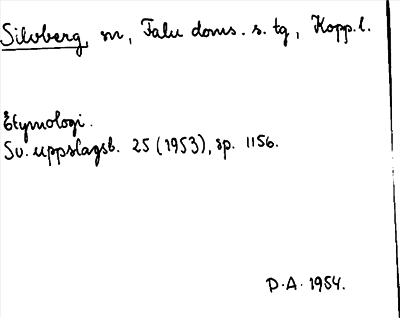 Silvberg, sn, Falu doms. s. tg, Kopp. l.
Etymologi.
Sv. uppslagsb. 25 (1953), sp. 1156.
D. A. 1954.